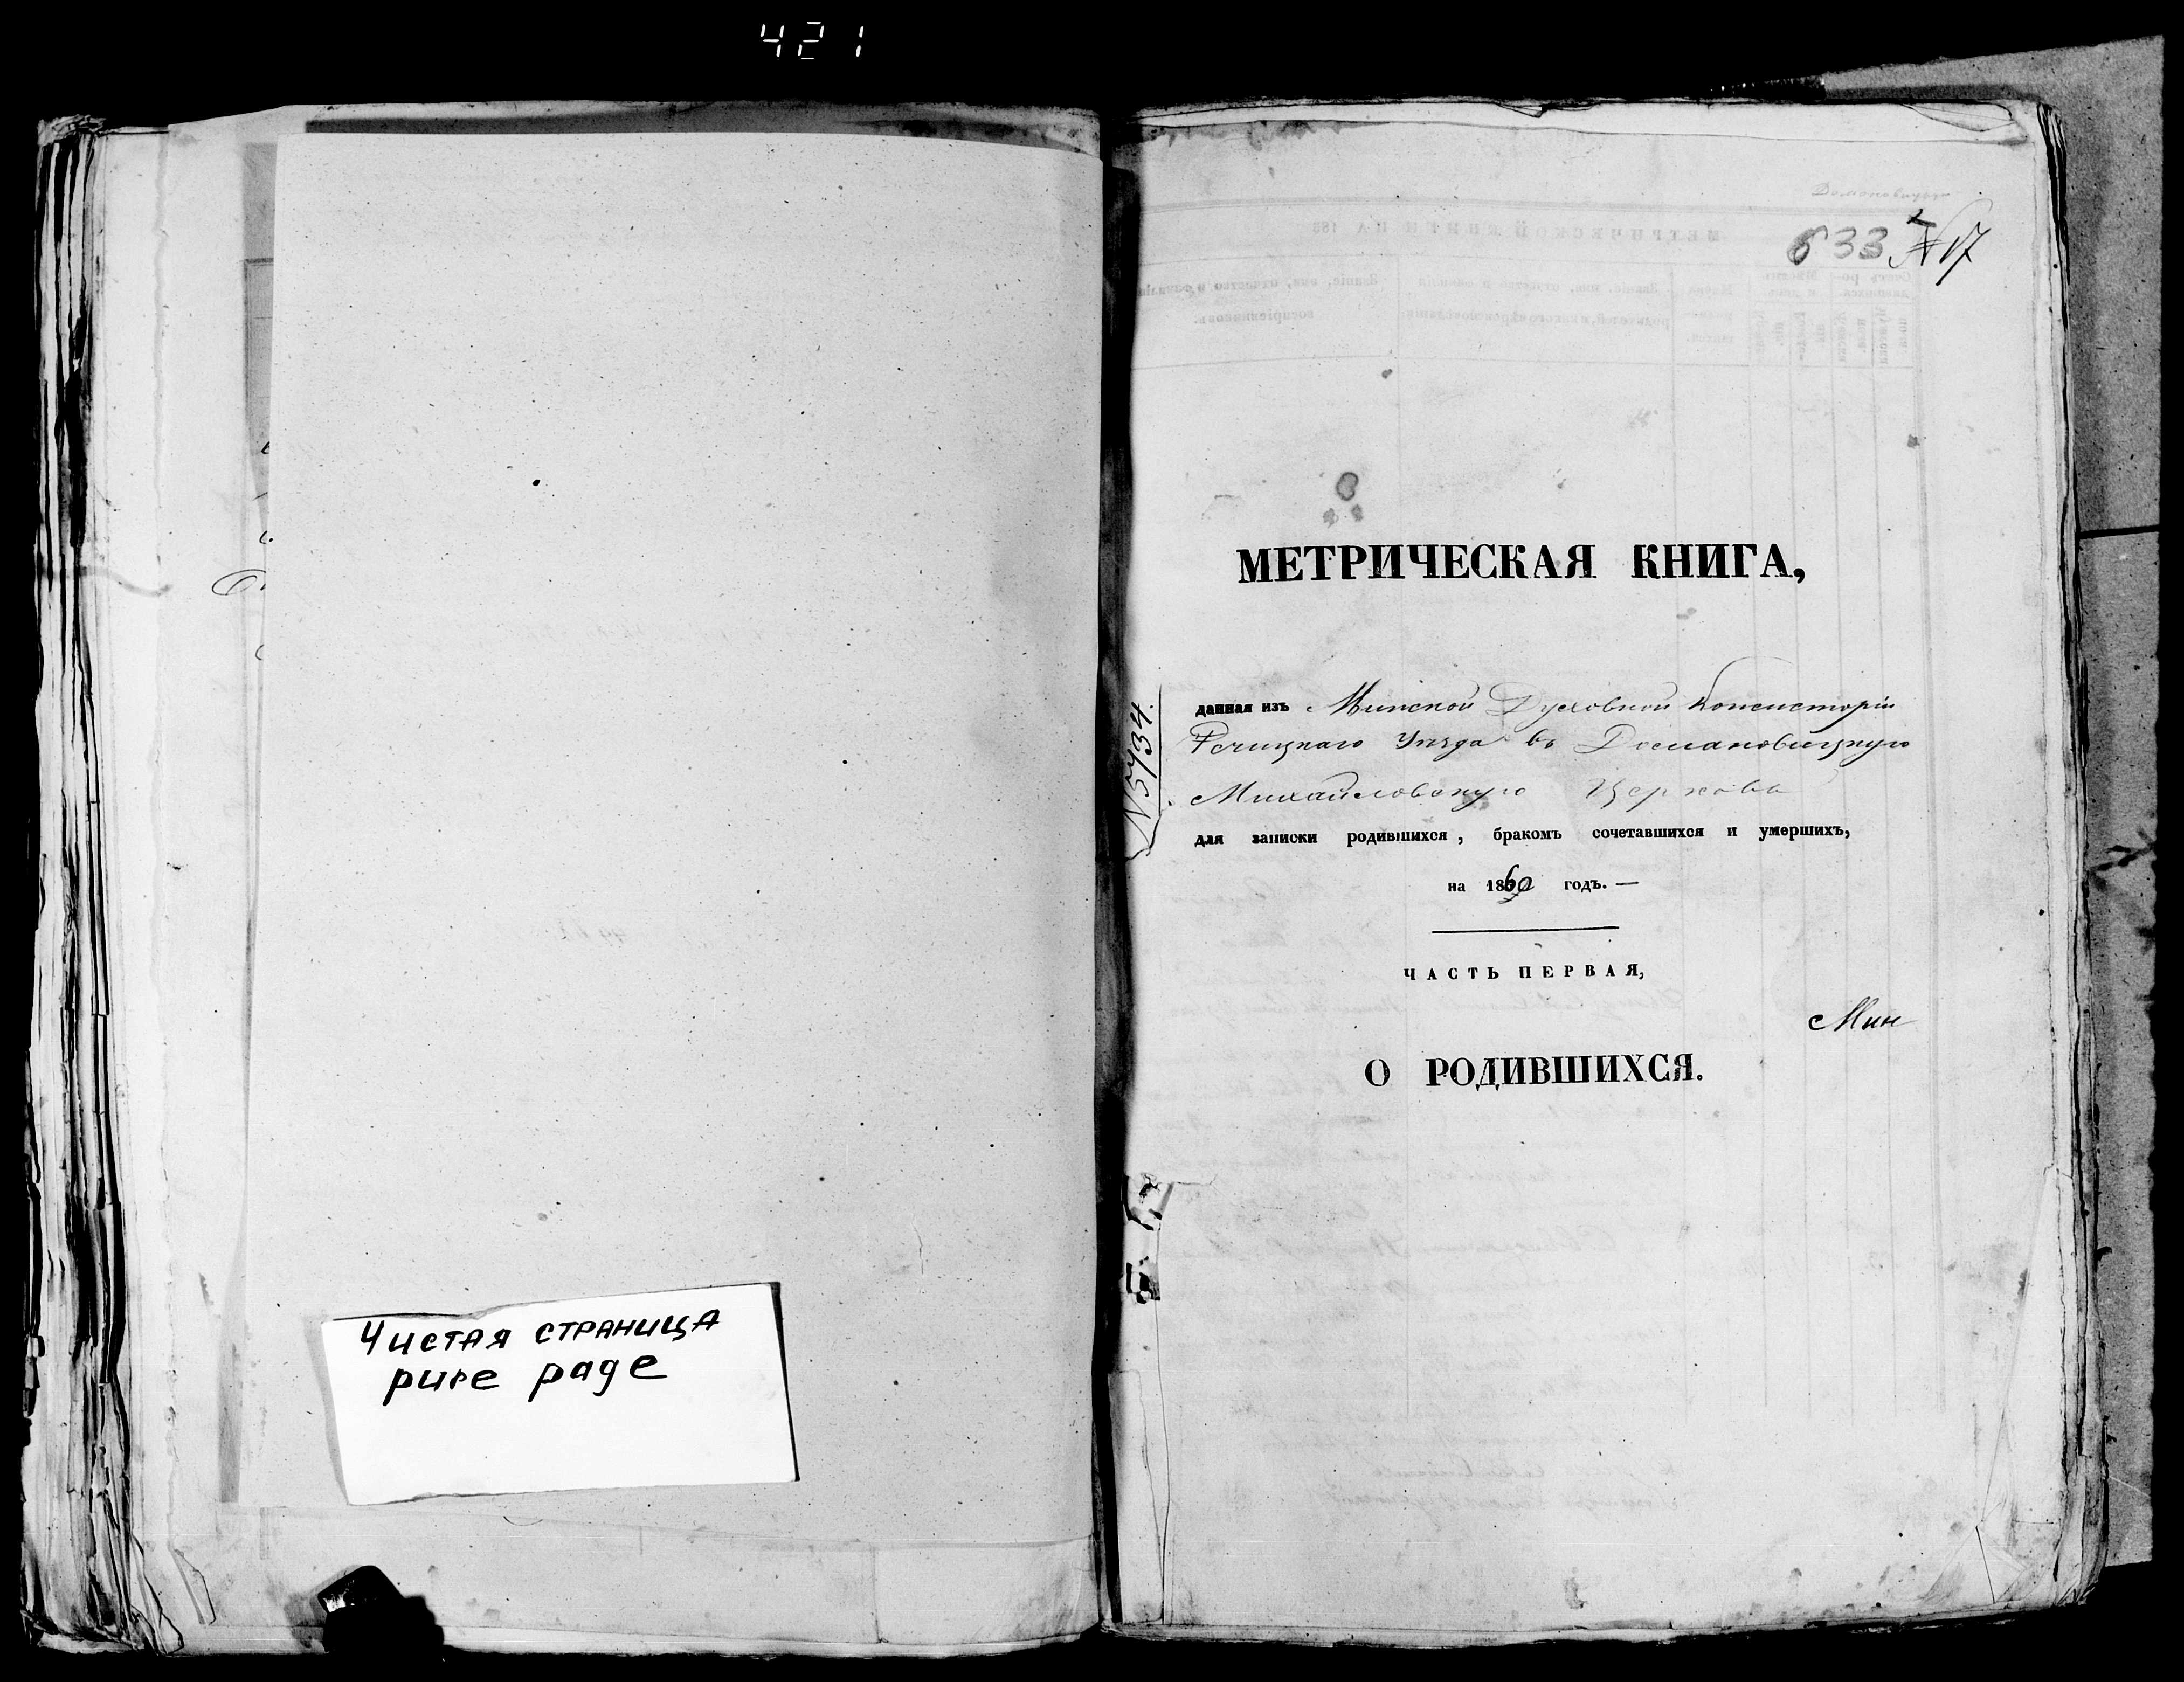 421
Чистая страница
pure page
Домановиую
633 №17
МЕТРИЧЕСКАЯ КНИГА,
№5734.
данная изъ Минской Духовной Консисторіи
Речицкаго Уѣзда въ Домановицкую
Михайловскую Церковь
для записки родившихся, бракомъ сочетавшихся и умершихъ,
на 1860 годъ.—
ЧАСТЬ ПЕРВАЯ,
Мин
О РОДИВШИХСЯ.